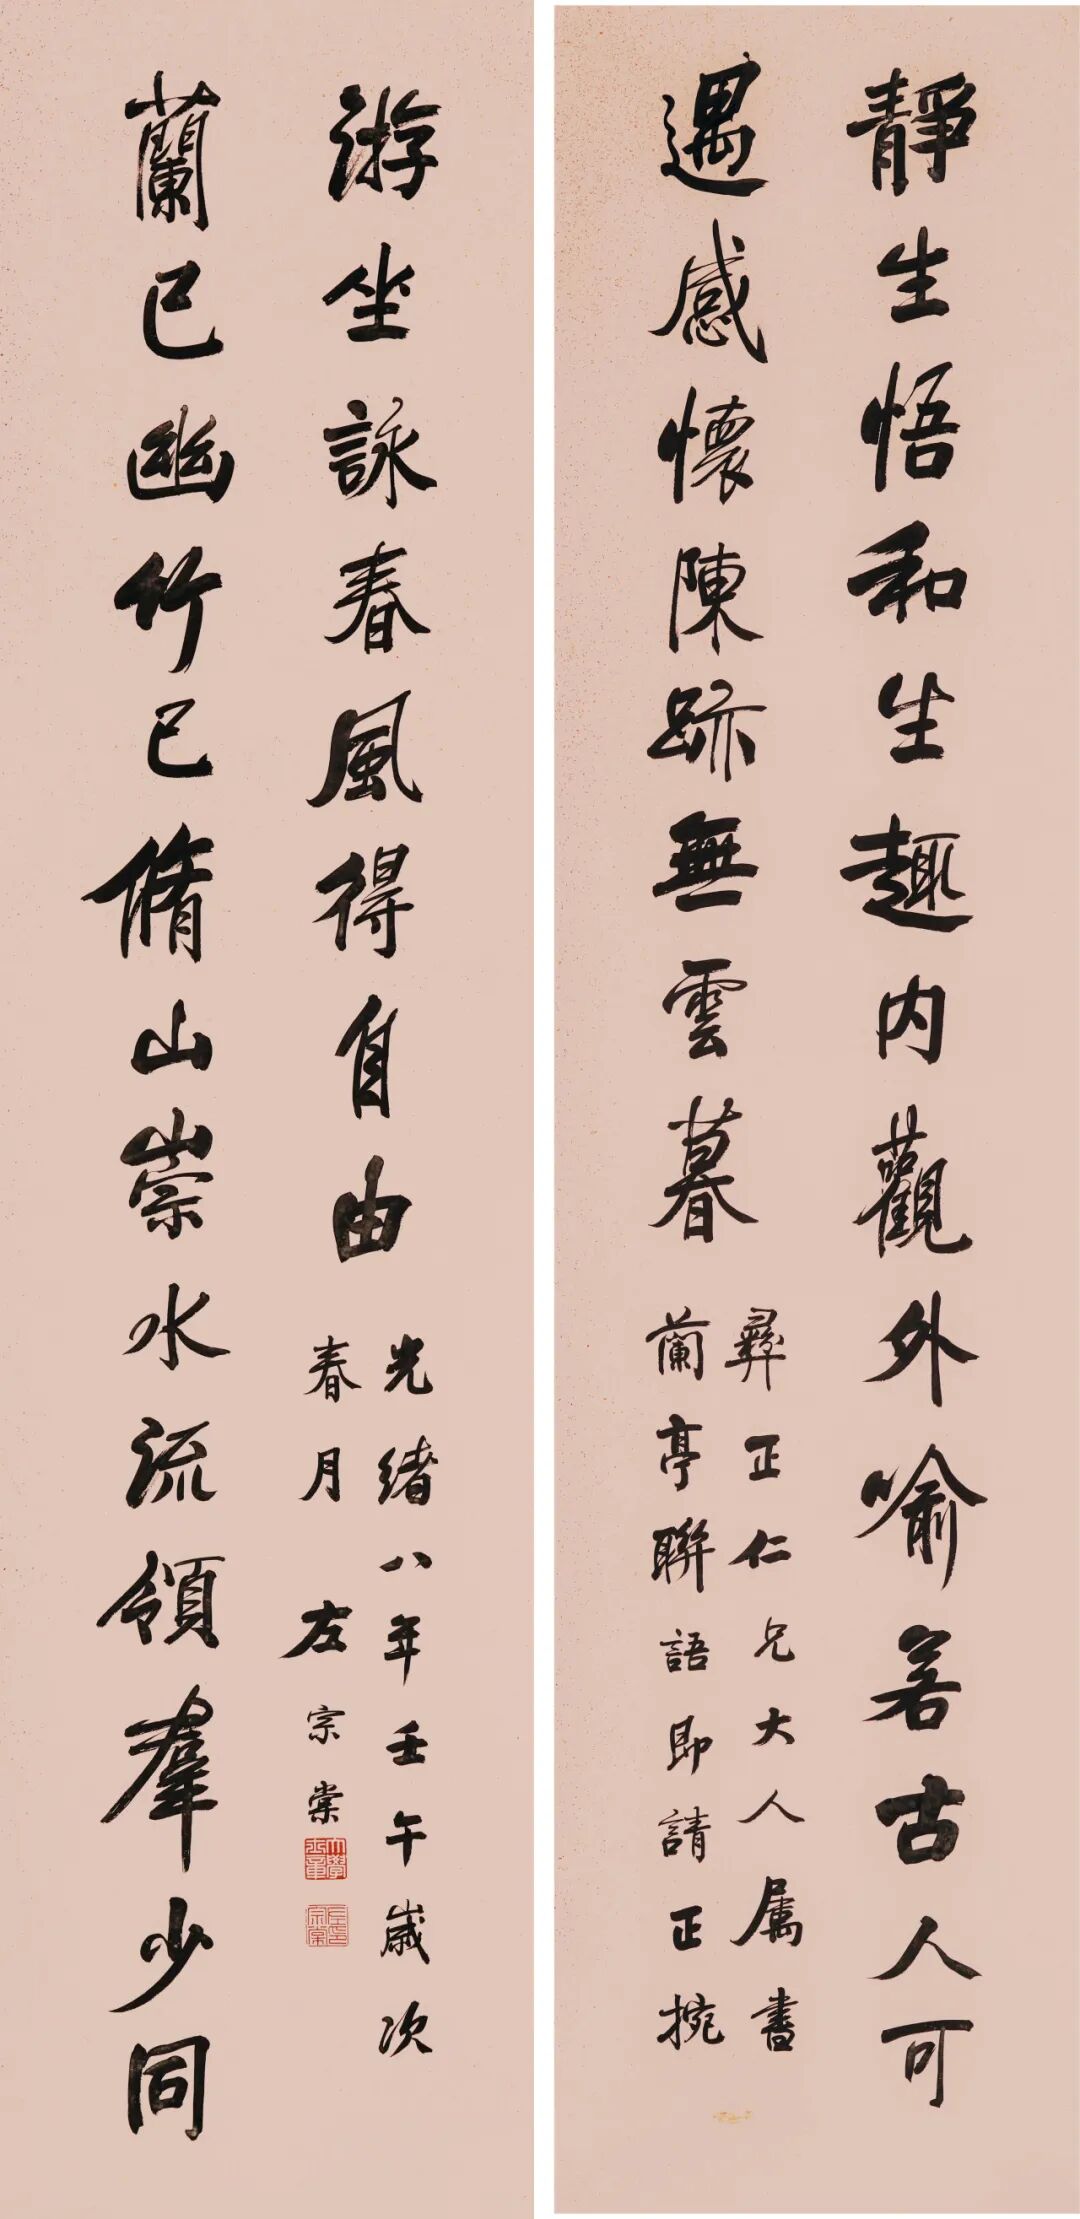 靜生悟和生趣内觀外喻若古人可
遇感懷陳跡無雲暮
彝正仁兄大人属書
蘭亭聯語即請正捥
蘭已幽竹已脩山崇水流領羣少同
游坐詠春風得自由
光緒八年壬午歲次
春月左宗棠
大學士章
左印宗棠